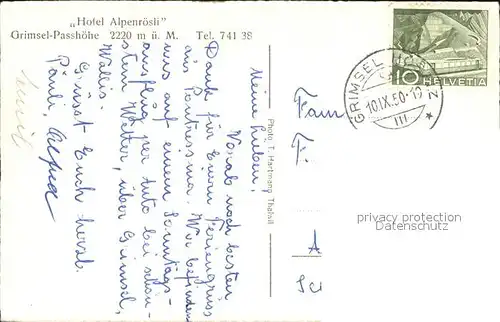 „Hotel Alpenrösli"
Grimsel-Passhöhe 2220 m ü. M. Tel. 741 38
Meine Lieben,
Vorab noch besten
Dank für Euern Feriengruss
aus Pontresina. Wir befinden
uns auf einem Sonntags-
ausflug per Auto bei schön-
stem Wetter, über Grimsel,
Wallis.
Grüsst Euch herzl.
Päuli,
Photo T. Hartmann Thalwil
Fam
F.
A
Sc
GRIMSEL HO
10.IX.50
III
10 HELVETIA
privacy protection
Datenschutz